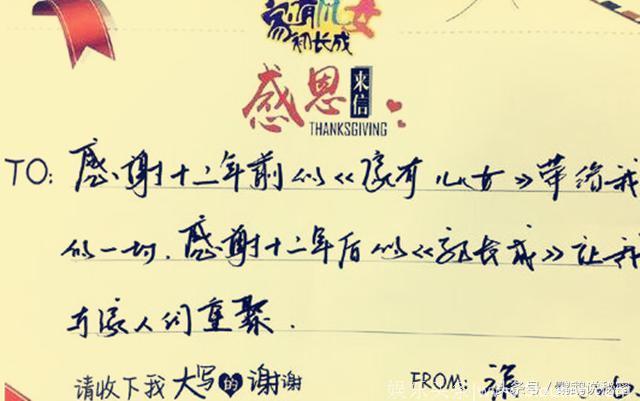 家有儿女
初长成
感恩来信
THANKSGIVING
TO: 感谢十二年前的《家有儿女》带给我
的一切，感谢十二年后的《初长成》让我
与家人们重聚.
请收下我大写的谢谢 FROM: